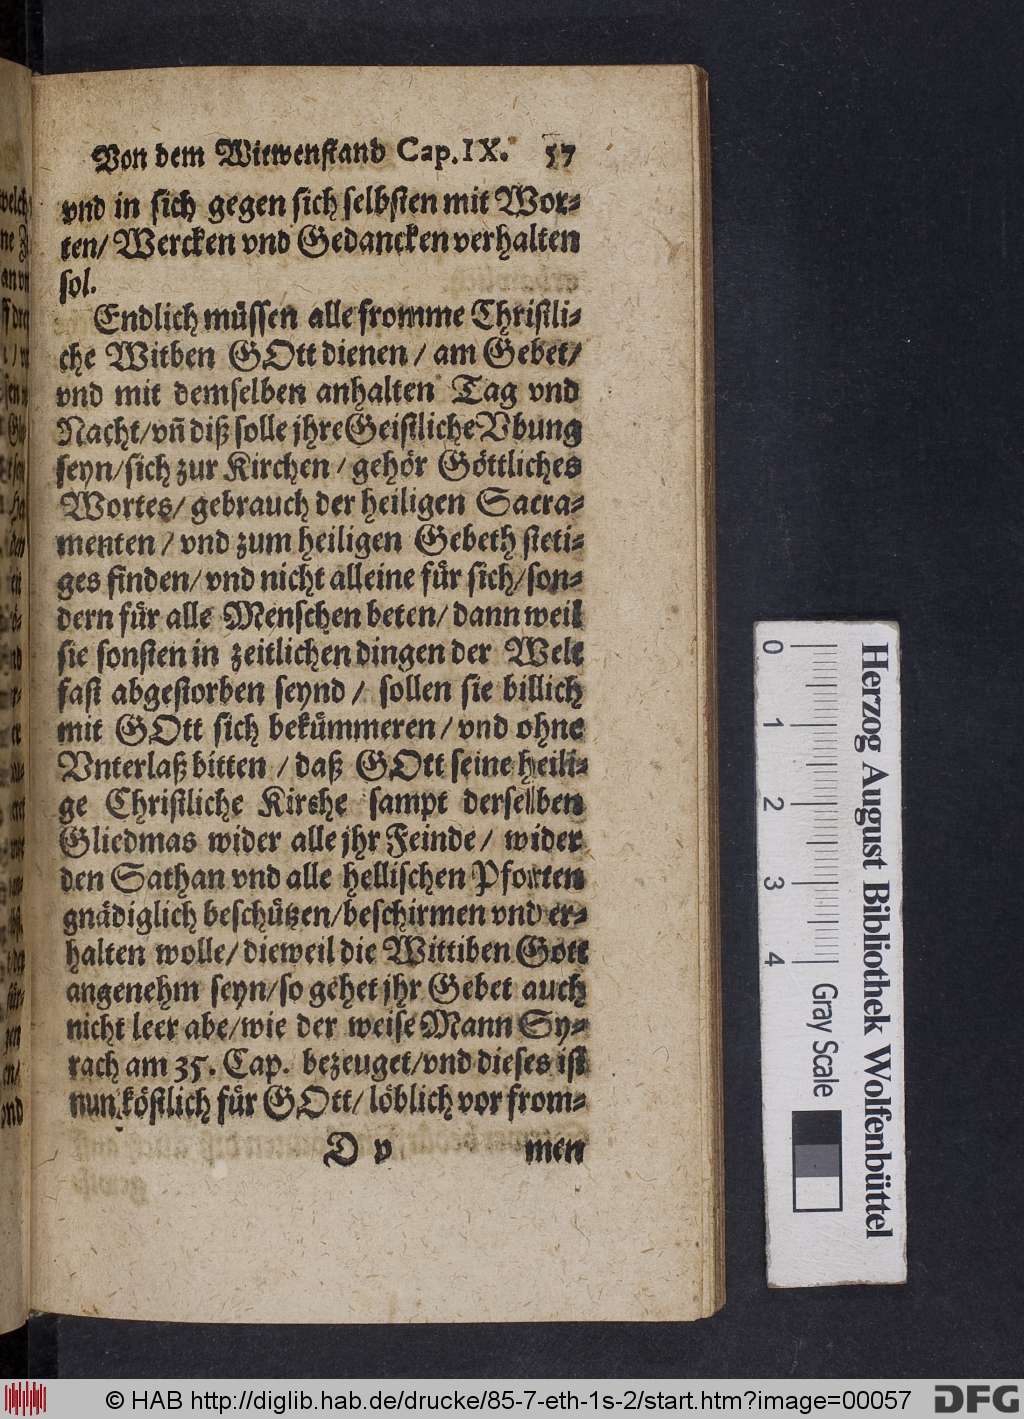 Von dem Witwenstand Cap. IX. 57
vnd in sich gegen sich selbsten mit Wor-
ten/ Wercken vnd Gedancken verhalten
sol.
Endlich müssen alle fromme Christli-
che Witben GOtt dienen / am Gebet/
vnd mit demselben anhalten Tag vnd
Nacht/ vñ diß solle jhre Geistliche Vbung
seyn/ sich zur Kirchen / gehör Göttliches
Wortes/ gebrauch der heiligen Sacra-
menten / vnd zum heiligen Gebeth steti-
ges finden/ vnd nicht alleine für sich/ son-
dern für alle Menschen beten/ dann weil
sie sonsten in zeitlichen dingen der Welt
fast abgestorben seynd / sollen sie billich
mit GOtt sich bekümmeren/ vnd ohne
Vnterlaß bitten / daß GOtt seine heili-
ge Christliche Kirche sampt derselben
Gliedmas wider alle jhr Feinde/ wider
den Sathan vnd alle hellischen Pforten
gnädiglich beschützen/ beschirmen vnd er-
halten wolle/ dieweil die Wittiben Gott
angenehm seyn/ so gehet jhr Gebet auch
nicht leer abe/ wie der weise Mann Sy-
rach am 35. Cap. bezeuget/ vnd dieses ist
nun köstlich für GOtt/ löblich vor from-
D v men
0 1 2 3 4
Gray Scale
Herzog August Bibliothek Wolfenbüttel
© HAB http://diglib.hab.de/drucke/85-7-eth-1s-2/start.htm?image=00057
DFG